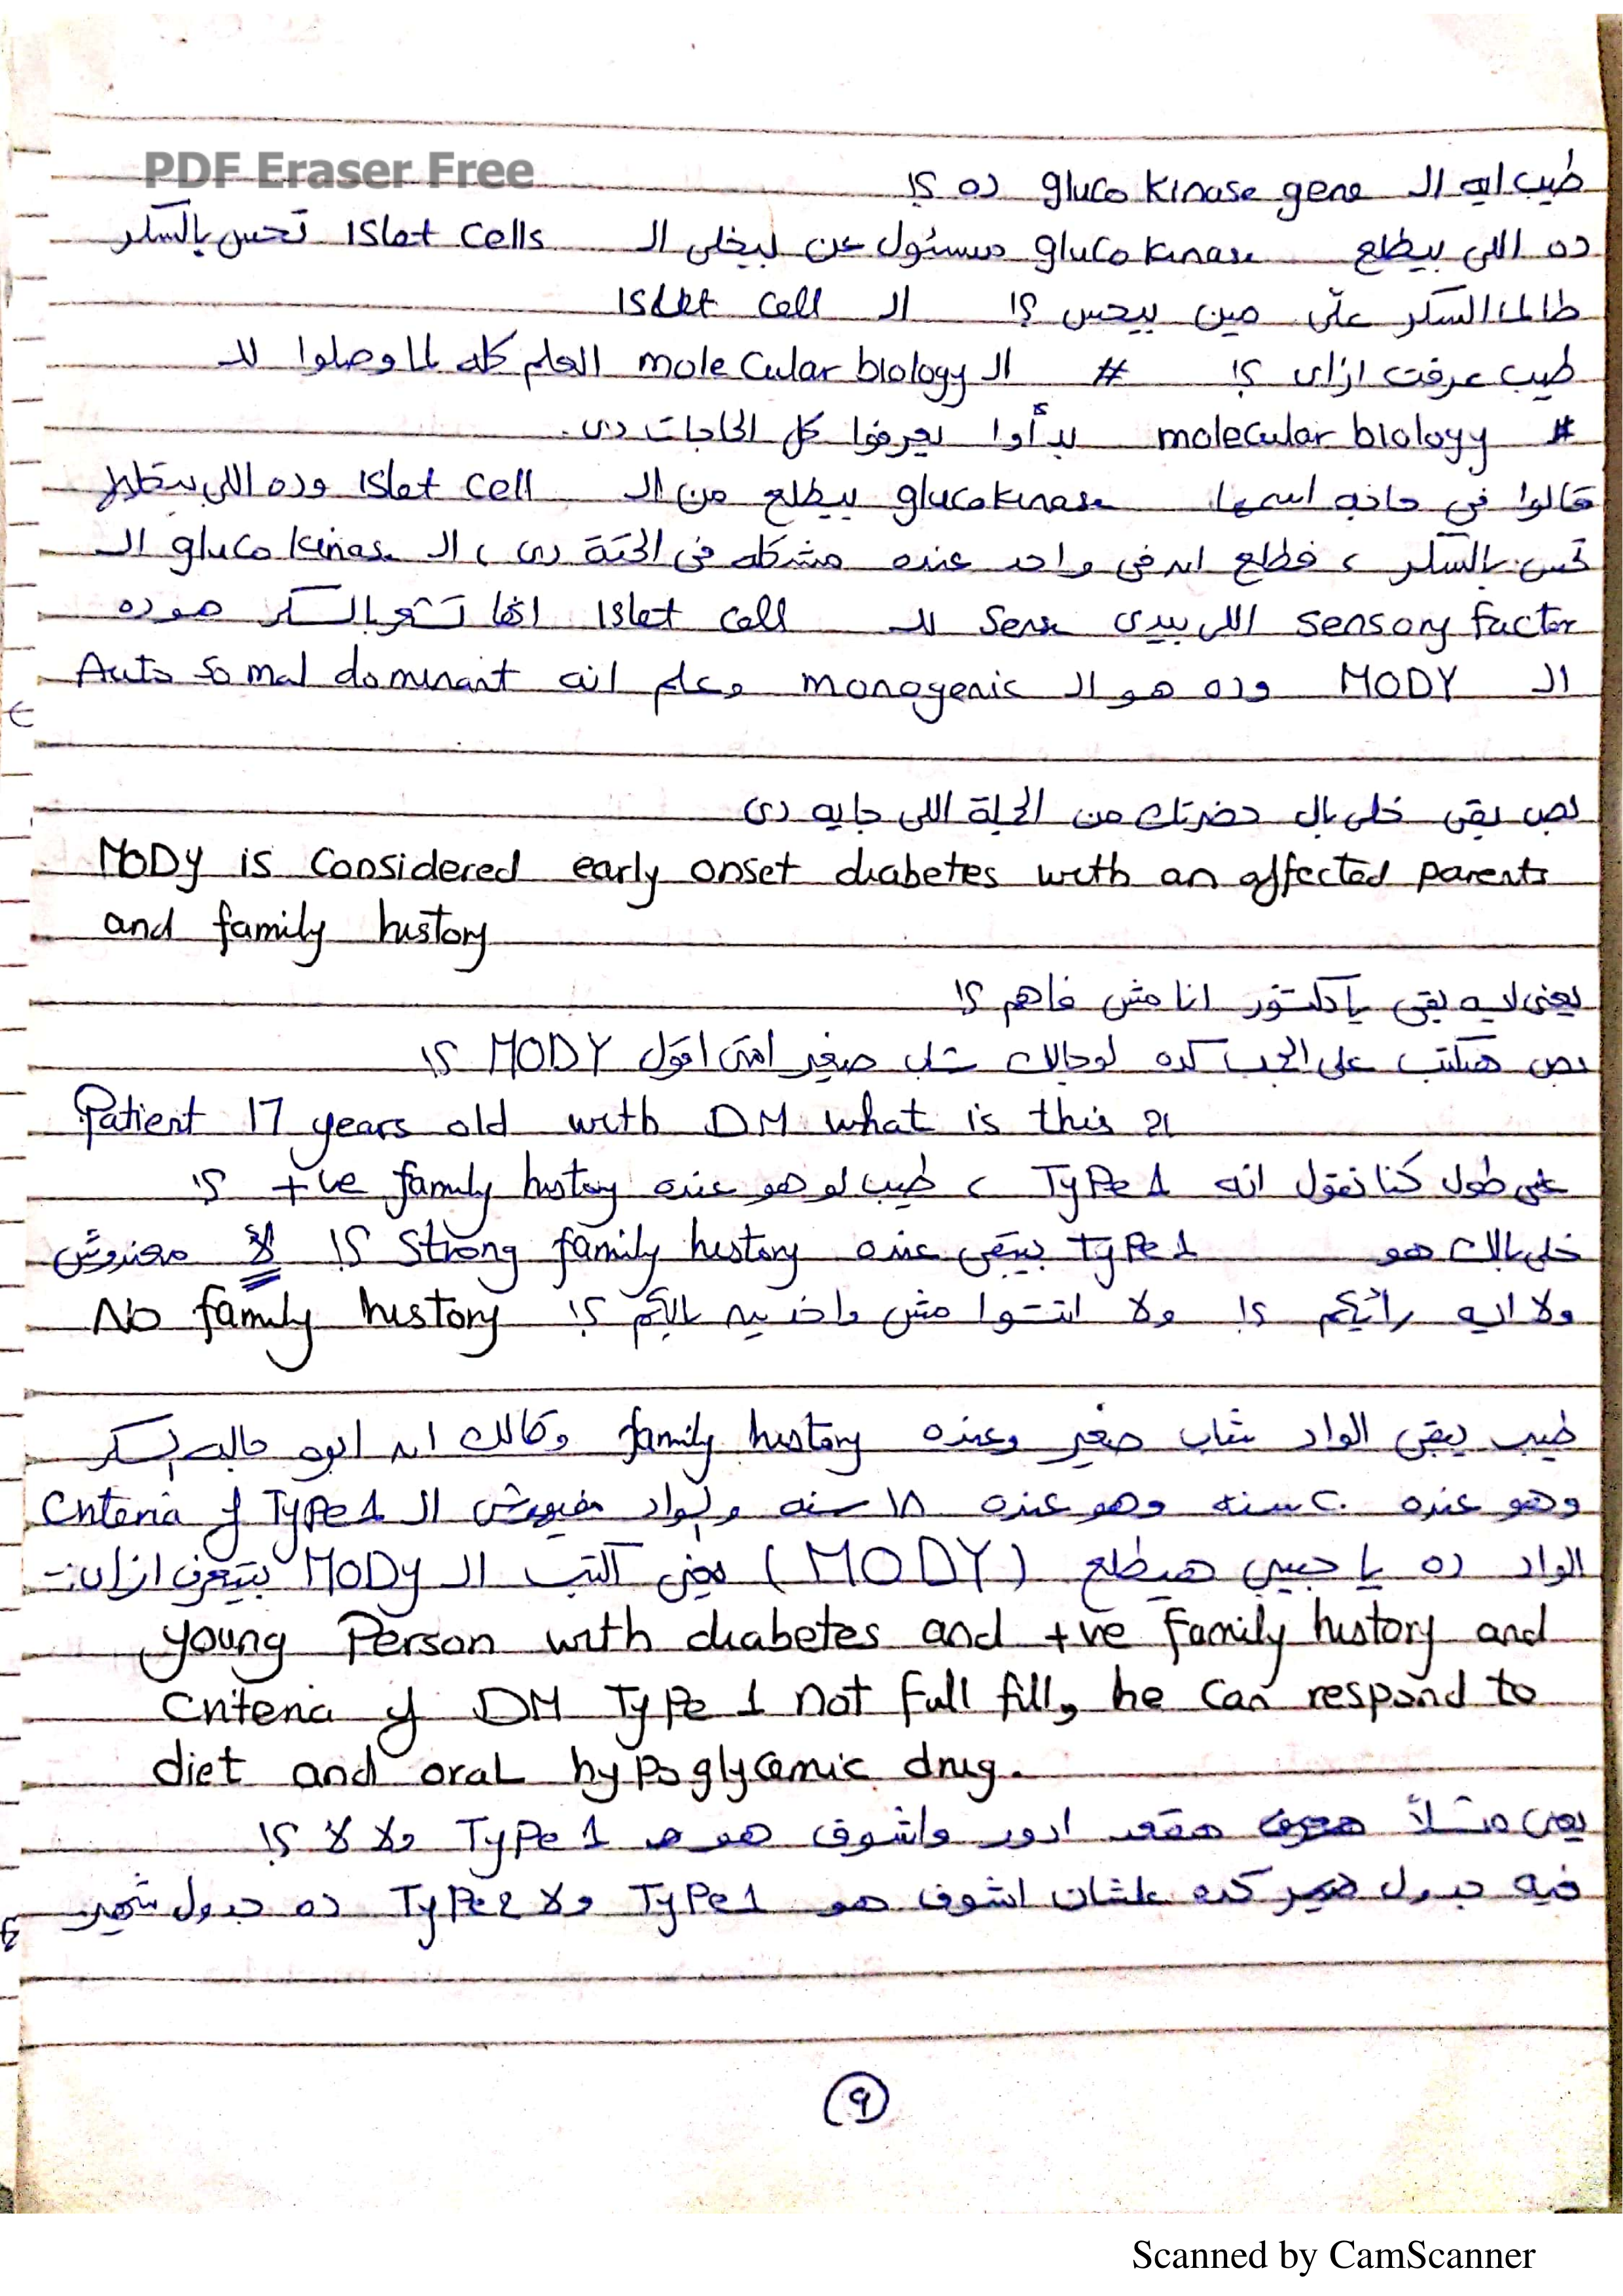 PDF Eraser Free
طيب ايه ال gluco kinase gene ده ؟!
ده اللى بيطلع gluco kinase مسئول عن بيخلى ال Islet cells تحس بالسكر
طالما السكر علّى مين بيحس ؟! ال Islet cell
طيب عرفت ازاى ؟! # ال molecular biology العلم كله لما وصلوا لل
# molecular biology بدأوا يعرفوا كل الحاجات دى.
قالوا فى حاجه اسمها glucokinase بيطلع من ال Islet cell وده اللى بيخليها
تحس بالسكر ، فطلع ان فى واحد عنده مشكله فى الحتة دى ، ال gluco kinase ال
sensory factor اللى بيدى sense لل Islet cell انها تشعر بالسكر هو ده
ال MODY وده هو ال monogenic وعلم انه Auto somal dominant
بص بقى خلى بال حضرتك من الجملة اللى جايه دى
MODY is considered early onset diabetes with an affected parents
and family history
يعنى ايه بقى يا دكتور انا مش فاهم ؟!
بص هنكتب على الجنب كده لو جالك شاب صغير امتى اقول MODY ؟!
Patient 17 years old with DM what is this ?!
على طول كنا نقول انه Type 1 ، طيب لو هو عنده +ve family history ؟!
خلى بالك هو Type 1 بيبقى عنده strong family history ؟! لأ معندوش
ولا ايه رأيكم ؟! ولا انتوا مش واخدين بالكم ؟! No family history
طيب يبقى الواد شاب صغير وعنده family history وقالك ان ابوه جاله السكر
وهو عنده ٢٠ سنه وهو عنده ١٨ سنه والواد مفيهوش ال Criteria of Type 1
الواد ده يا حبيبى هيطلع (MODY) يعنى اكتب ال MODY بيتعرف ازاى :-
young Person with diabetes and +ve family history and
criteria of DM Type 1 not full fill, he can respond to
diet and oral hypoglycemic drug.
يعنى مثلاً هقعد ادور واشوف هو Type 1 ولا لا ؟!
فيه جدول كده علشان اشوف هو Type 1 ولا Type 2 ده جدول شهير
٩
Scanned by CamScanner